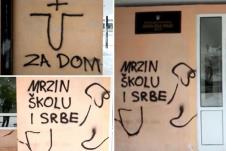 ZA DOM
MRZIN
ŠKOLU
I SRBE
MRZIN
ŠKOLU
I SRBE